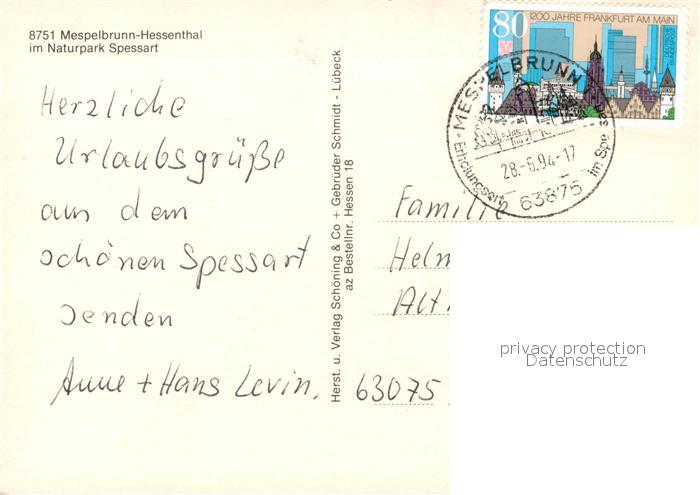 8751 Mespelbrunn-Hessenthal
im Naturpark Spessart
Herzliche
Urlaubsgrüße
aus dem
schönen Spessart
senden
Anne + Hans Levin.
Herst. u. Verlag Schöning & Co + Gebrüder Schmidt - Lübeck
az Bestellnr. Hessen 18
80
1200 JAHRE FRANKFURT AM MAIN
MESPELBRUNN
28.-6.94-17
63875
Erholungsort
im Spessart
Familie
Helm
Alt
63075
privacy protection
Datenschutz